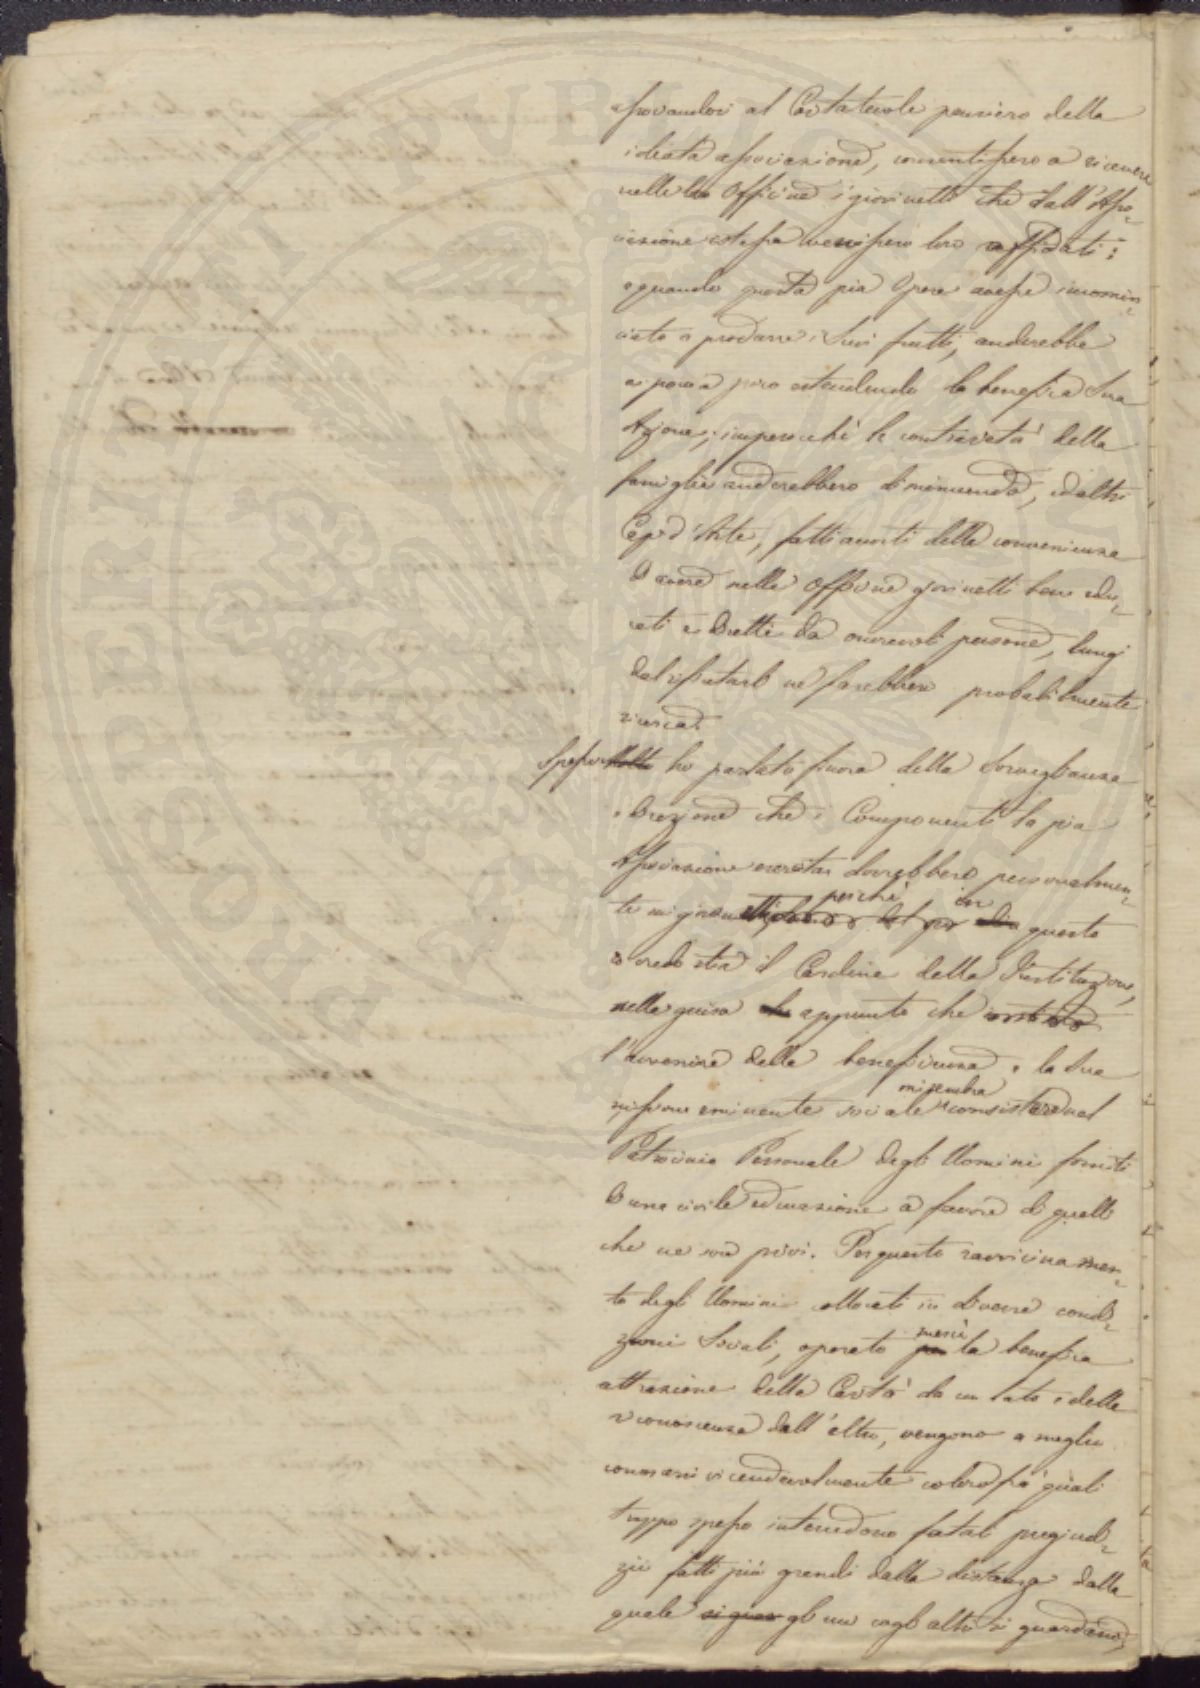 associandosi al Caritatevole pensiero della
ideata associazione, consentissero a ricevere
nelle loro Officine i giovinetti che dall'Asso=
ciazione istessa venissero loro affidati;
e quando questa pia Opera avesse incomin=
ciato a produrre i suoi frutti, anderebbe
a poco a poco estendendo la benefica sua
Azione; imperocchè le contrarietà della
famiglie anderebbero diminuendo, ed altri
Capi d'Arte, fatti accorti della convenienza
di avere nelle Officine giovinetti bene edu=
cati e diretti da onorevoli persone, lungi
dal rifiutarli ne farebbero probabilmente
ricerca.
Spesso Molto ho parlato finora della sorveglianza
e direzione che i Componenti la pia
Associazione esercitar dovrebbero personalmen=
te sui giovinetti perchè in questo
io credo stia il Cardine della Istituzione,
nella guisa appunto che
l'avvenire della beneficenza e la sua
missione eminente sociale mi sembra consistere nel
Patrocinio Personale degli Uomini forniti
di una civile educazione a favore di quelli
che ne son privi. Per questo ravvicinamen=
to degli Uomini collocati in diverse condi=
zioni Sociali, operato per mercè la benefica
attrazione della Carità da un lato e della
riconoscenza dall'altro, vengono a meglio
conoscersi vicendevolmente coloro fra' quali
troppo spesso intercedono fatali pregiudi=
zii fatti più grandi dalla distanza dalla
quale si guar gli uni cogli altri si guardano,